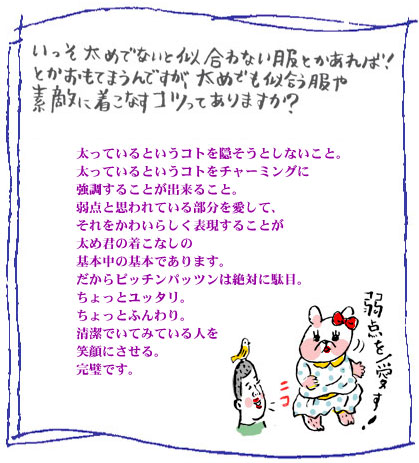 いっそ太めでないと似合わない服とかあれば!
とかおもてまうんですが、太めでも似合う服や
素敵に着こなすコツってありますか?
太っているというコトを隠そうとしないこと。
太っているというコトをチャーミングに
強調することが出来ること。
弱点と思われている部分を愛して、
それをかわいらしく表現することが
太め君の着こなしの
基本中の基本であります。
だからピッチンパッツンは絶対に駄目。
ちょっとユッタリ。
ちょっとふんわり。
清潔でいてみている人を
笑顔にさせる。
完璧です。
弱点を愛す!
ニコ